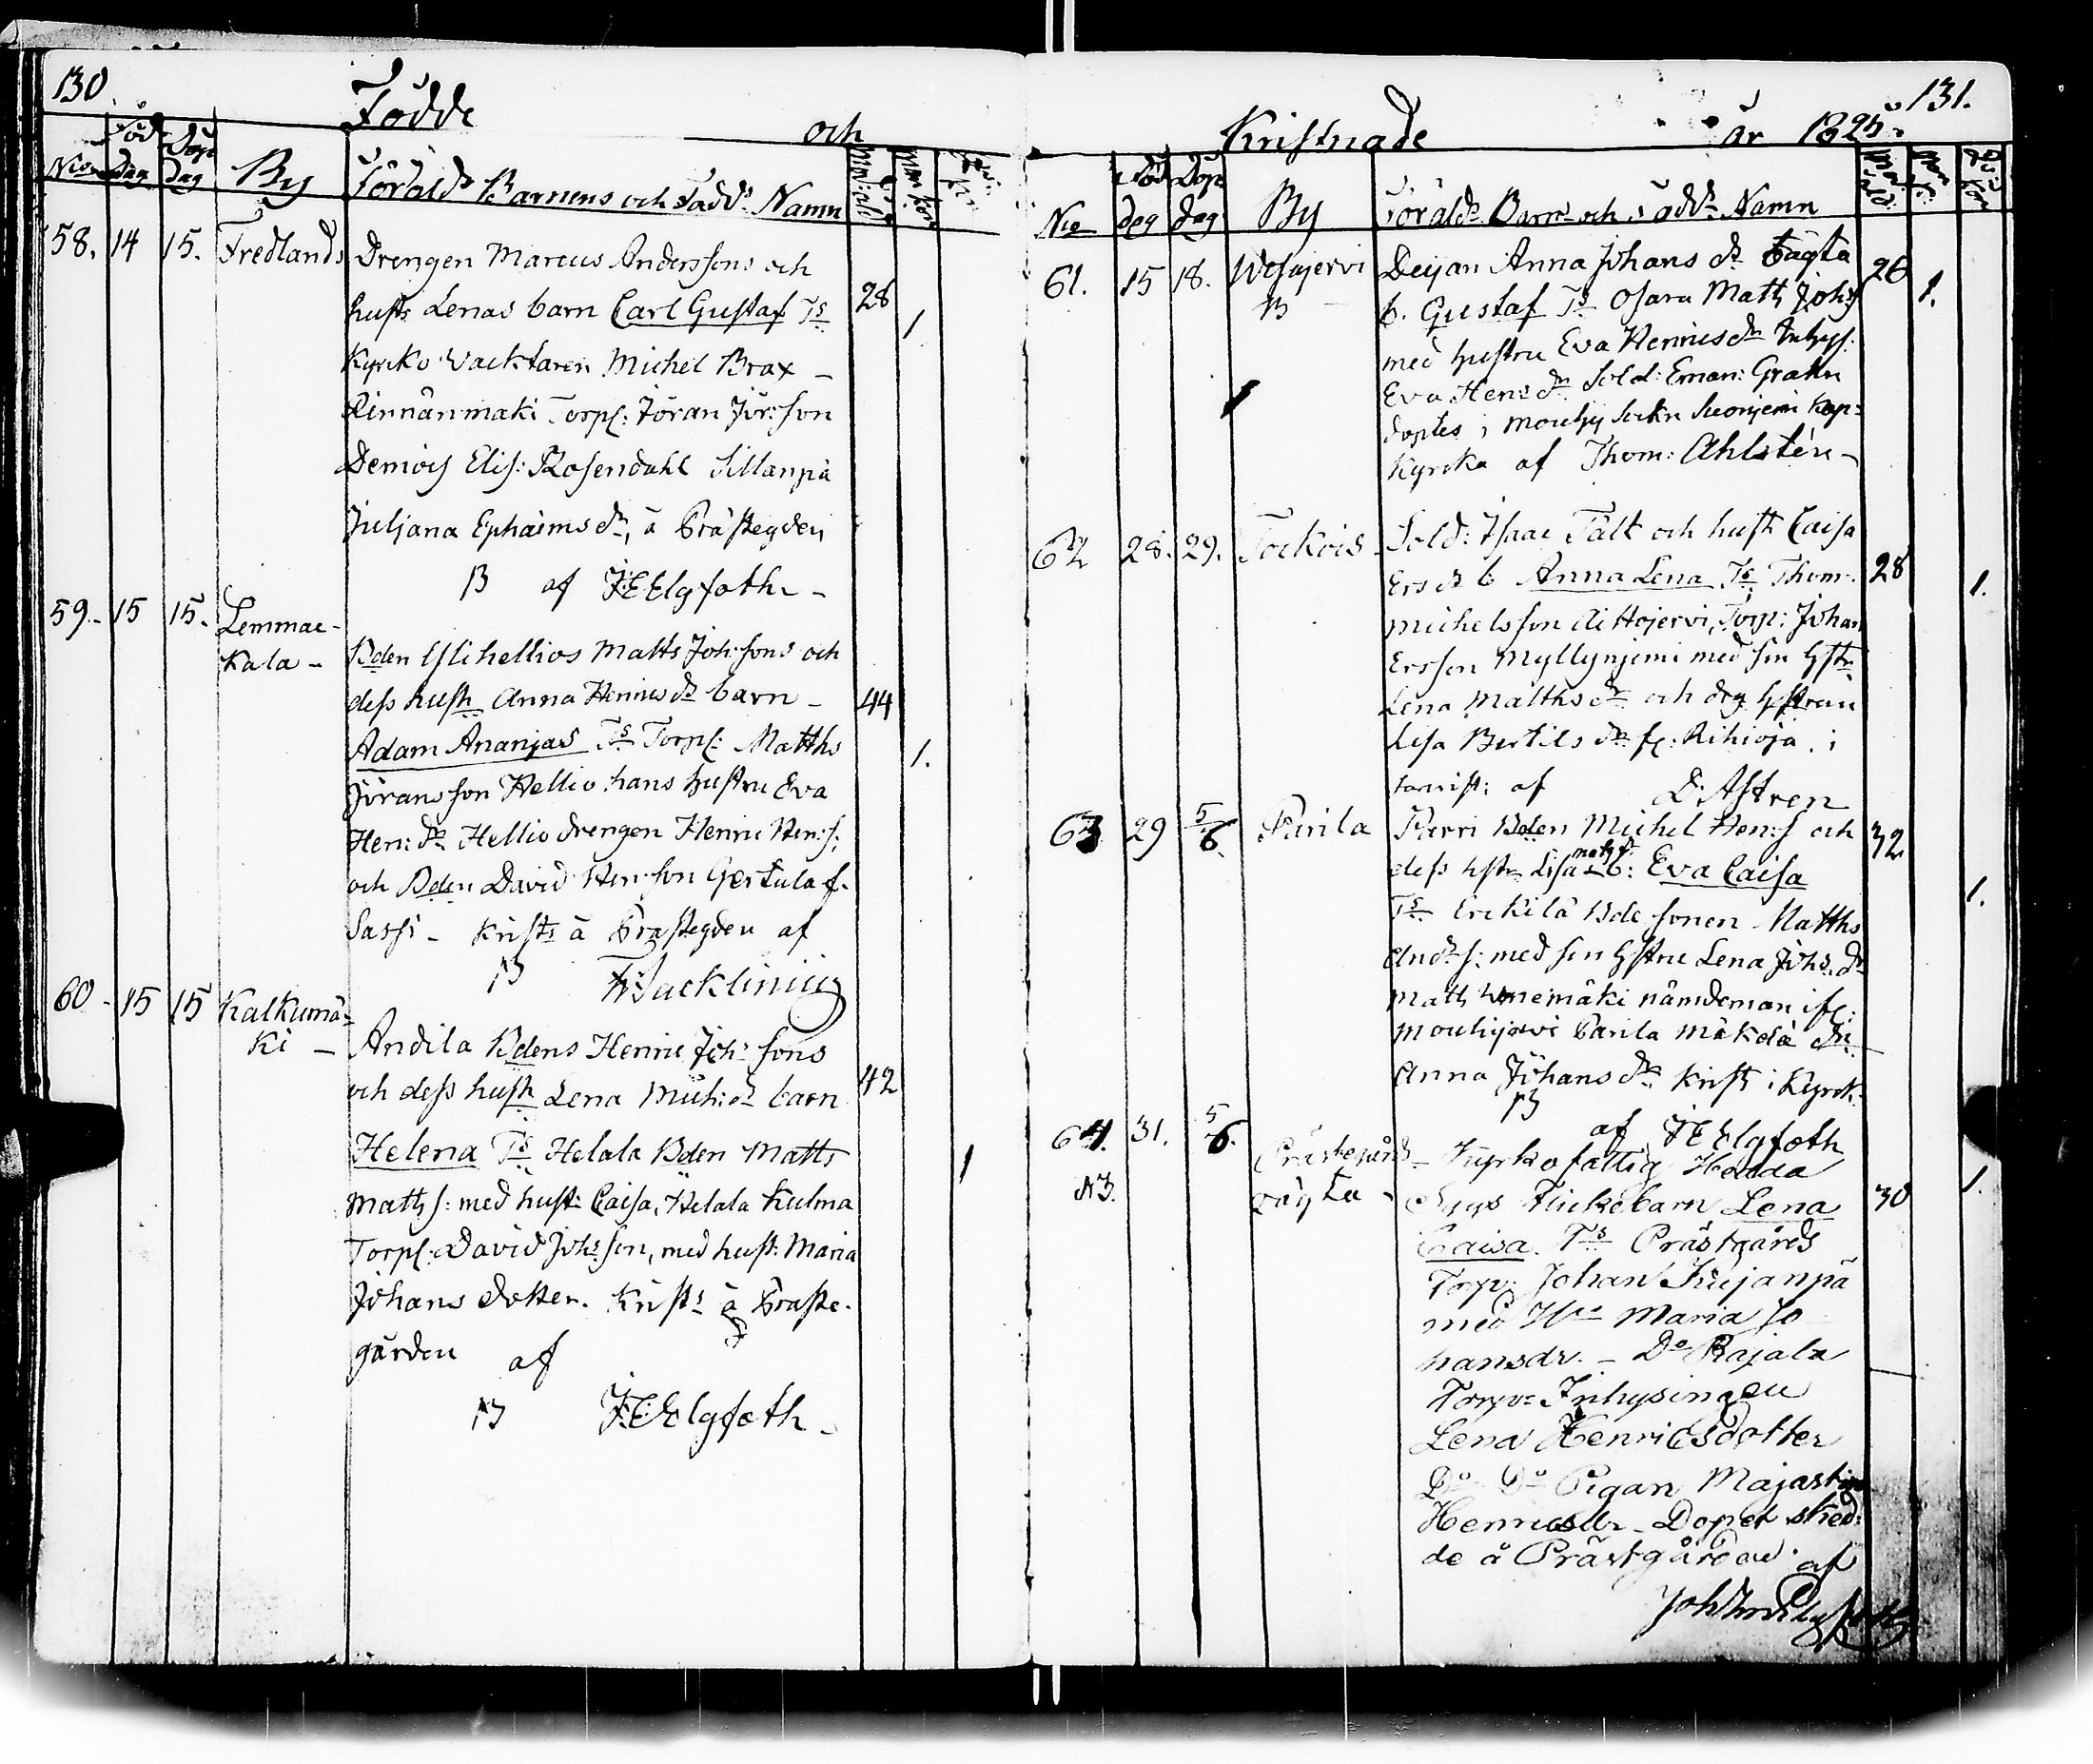 130
Födde
och
Nio
Föd dag
Döp dag
By
Föräldrs Barnens och Fadds Namn
58. 14 15. Fredlands Drengen Marcus Anderssons och
hustr Lenas barn Carl Gustaf Ts 28 1
Kyrko Vacktaren Michel Brax –
Rinnänmäki Torp: Jöran Jör:son
Demois Elis: Rosendahl Sillanpä
Juljana Ephaims dr, à Prästegden
B af F:E Elgfoth –
59. 15 15. Lemmae-
kala – Bden Ylihellios Matts Joh:sons och
dess hust Anna Henriesdr barn – 44
Adam Ananjas Ts Torp: Matths 1.
Jöransson Hellio hans hustru Eva
Hen: dr Hellio drengen Henric Hen:s:
och Bden David Hen:son Gertula f.
Sassi – Krists à Prästegden af
B Facklinius
60 – 15 15 Kalkumä-
ki – Andila Bdens Henric Joh:sons
och dess hust Lena Mich:dr barn 42
Helena Ts Helala Bden Matts 1
Matts: med hust: Caisa, Helala Kulma
Torp: David Johs:son, med hust: Maria
Johans dotter. Krists à Präste-
gården af
B F:E:Elgfoth –
131.
Kristnade år 1825.
Nio
Föd dag
Döp dag
By
Föräldr Barns och Fadds Namn
61. 15 18. Wesajervi Deijan Anna Johans dr Tagta 26
B b. Gustaf Ts Osara Matts Johs 1.
med hustru Eva Henriesdr Inhys:
Eva Hens dr Sold: Eman: Grahn
doptes i Mouhij Sockn Suonjemi Kap-
kyrcka af Thom: Ahlstén –
62 28. 29. Tockois – Sold: Isaac Tält och hust Caisa
Ersdr b Anna Lena Ts Thom: 28 1.
Michelsson Aittojervi, Torp: Johan
Ersson Myllynjemi med sin Hstr
Lena Matthsdr och drg hstrun
Lisa Bertils dr fr: Rihioja i
af D: Astren
63 29 5/6. Parila Parri Bden Michel Hen:s och 32
dess hstr Lisa b: Eva Caisa 1.
Ts Erckilä Bde sonen Matths
And:s: med sin hstru Lena Johs: dr
Matts nämdeman
Mouhijervi Parila
Anna Johans dr Krist i Kyrck:
B af F:E Elgfoth
64. 31. 5/6. Prästegårds – Kyrkofattig Hedda
N3. tagta – Flickebarn Lena 30 1.
Caisa. Ts Prästgårds
Torp: Johan Kujanpä
med Hu Maria Jo
hansdr. – Do Rajala
Torp: Inhysingen
Lena Henricsdotter
Do Do Pigan Majastina
Henricsdr – Dopet sked-
de å Prästgården af